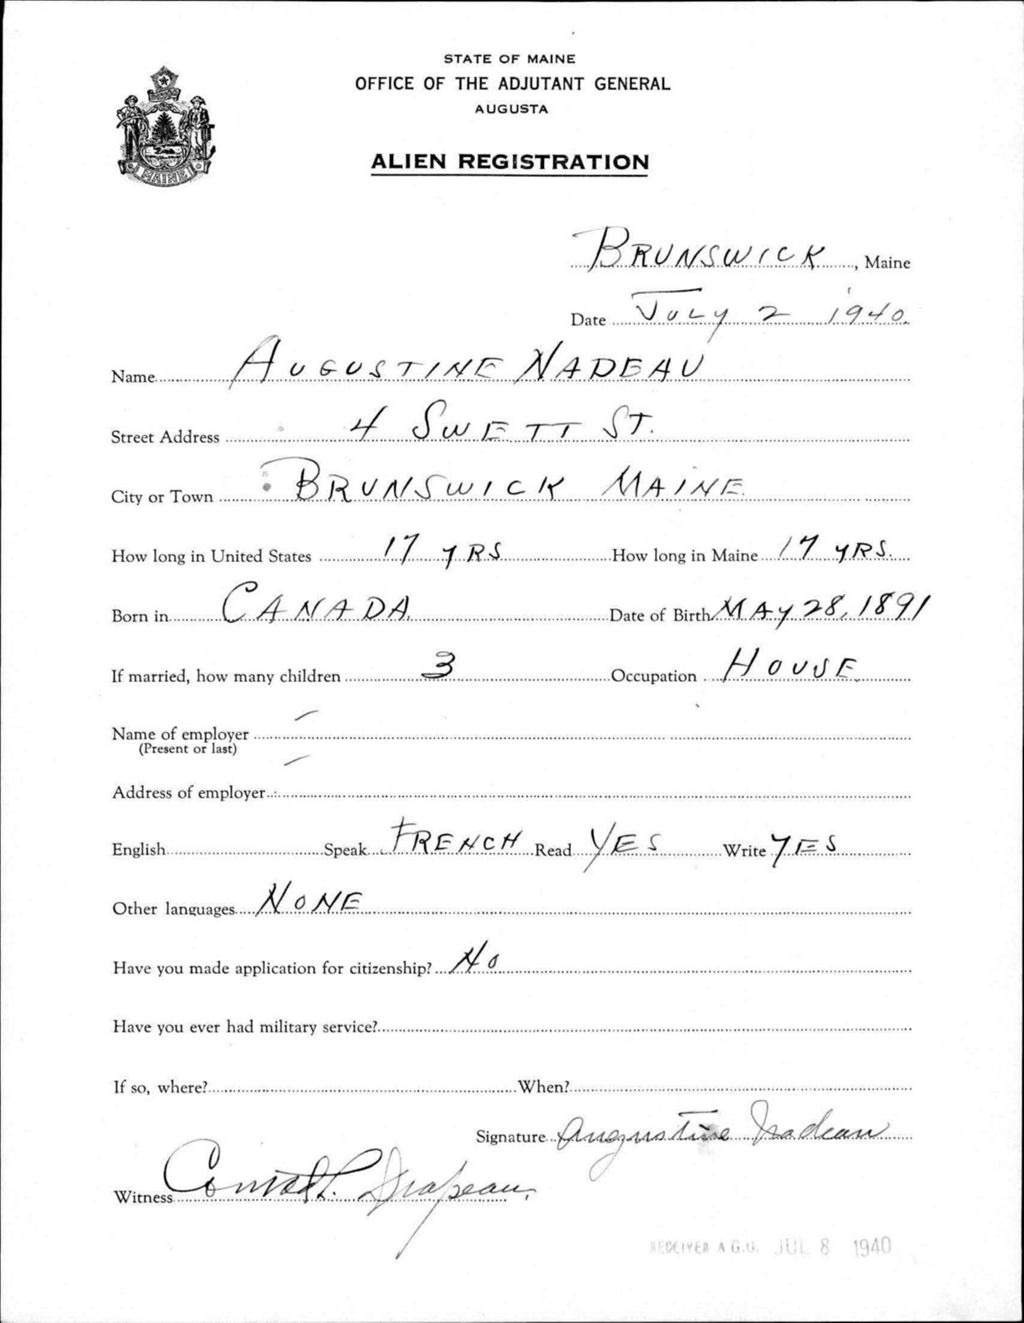 STATE OF MAINE
OFFICE OF THE ADJUTANT GENERAL
AUGUSTA
ALIEN REGISTRATION
MAINE
BRUNSWICK, Maine
Date JULY 2 1940.
Name AUGUSTINE NADEAU
Street Address 4 SWETT ST.
City or Town BRUNSWICK MAINE.
How long in United States 17 YRS How long in Maine 17 YRS.
Born in CANADA. Date of Birth MAY 28, 1891
If married, how many children 3 Occupation HOUSE.
Name of employer —
(Present or last)
Address of employer —
English Speak FRENCH Read YES Write YES
Other languages NONE
Have you made application for citizenship? NO
Have you ever had military service?
If so, where? When?
Signature Augustine Nadeau
Witness Conrad L. Drapeau.
RECEIVED A.G.O. JUL 8 1940